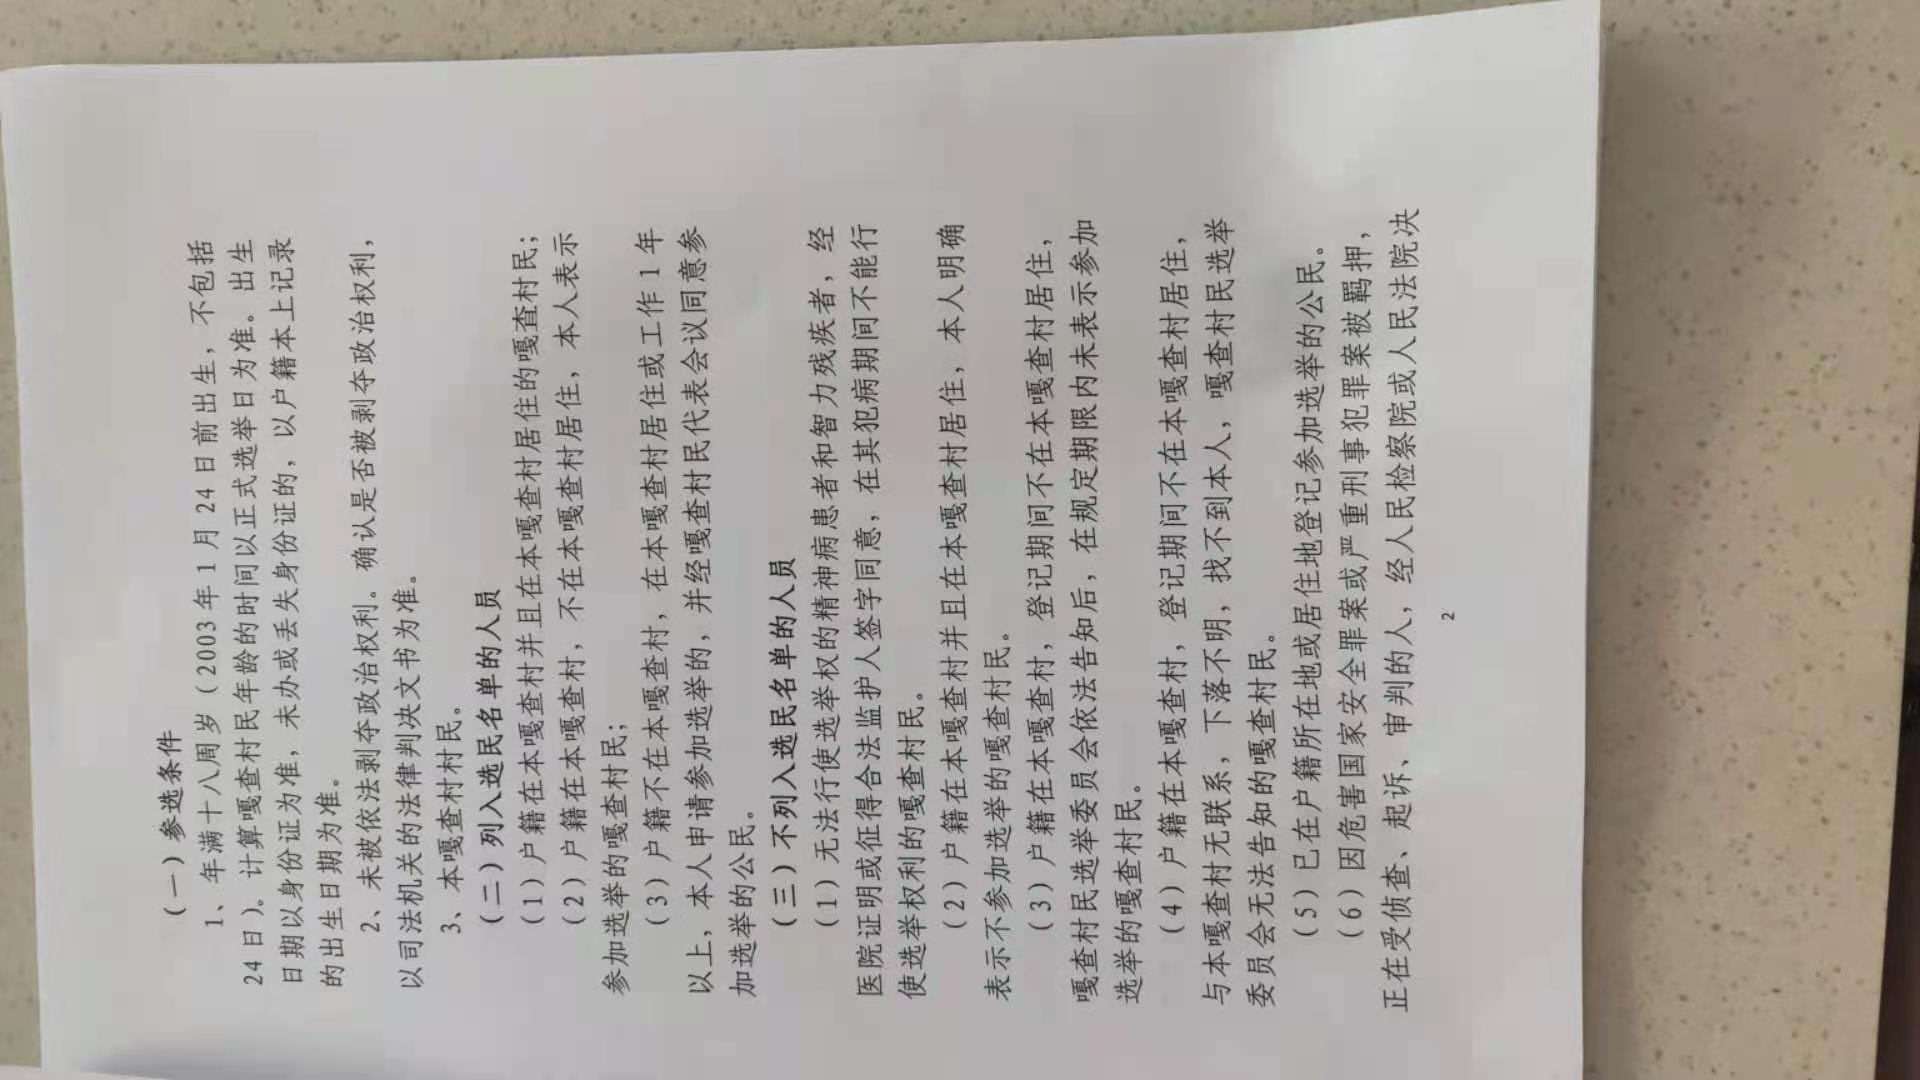 （一）参选条件
1、年满十八周岁（2003年1月24日前出生，不包括
24日）。计算嘎查村民年龄的时间以正式选举日为准。出生
日期以身份证为准，未办或丢失身份证的，以户籍本上记录
的出生日期为准。
2、未被依法剥夺政治权利。确认是否被剥夺政治权利，
以司法机关的法律判决文书为准。
3、本嘎查村村民。
（二）列入选民名单的人员
（1）户籍在本嘎查村并且在本嘎查村居住的嘎查村民；
（2）户籍在本嘎查村，不在本嘎查村居住，本人表示
参加选举的嘎查村民；
（3）户籍不在本嘎查村，在本嘎查村居住或工作1年
以上，本人申请参加选举的，并经嘎查村民代表会议同意参
加选举的公民。
（三）不列入选民名单的人员
（1）无法行使选举权的精神病患者和智力残疾者，经
医院证明或征得合法监护人签字同意，在其犯病期间不能行
使选举权利的嘎查村民。
（2）户籍在本嘎查村并且在本嘎查村居住，本人明确
表示不参加选举的嘎查村民。
（3）户籍在本嘎查村，登记期间不在本嘎查村居住，
嘎查村民选举委员会依法告知后，在规定期限内未表示参加
选举的嘎查村民。
（4）户籍在本嘎查村，登记期间不在本嘎查村居住，
与本嘎查村无联系，下落不明，找不到本人，嘎查村民选举
委员会无法告知的嘎查村民。
（5）已在户籍所在地或居住地登记参加选举的公民。
（6）因危害国家安全罪案或严重刑事犯罪案被羁押，
正在受侦查、起诉、审判的人，经人民检察院或人民法院决
2